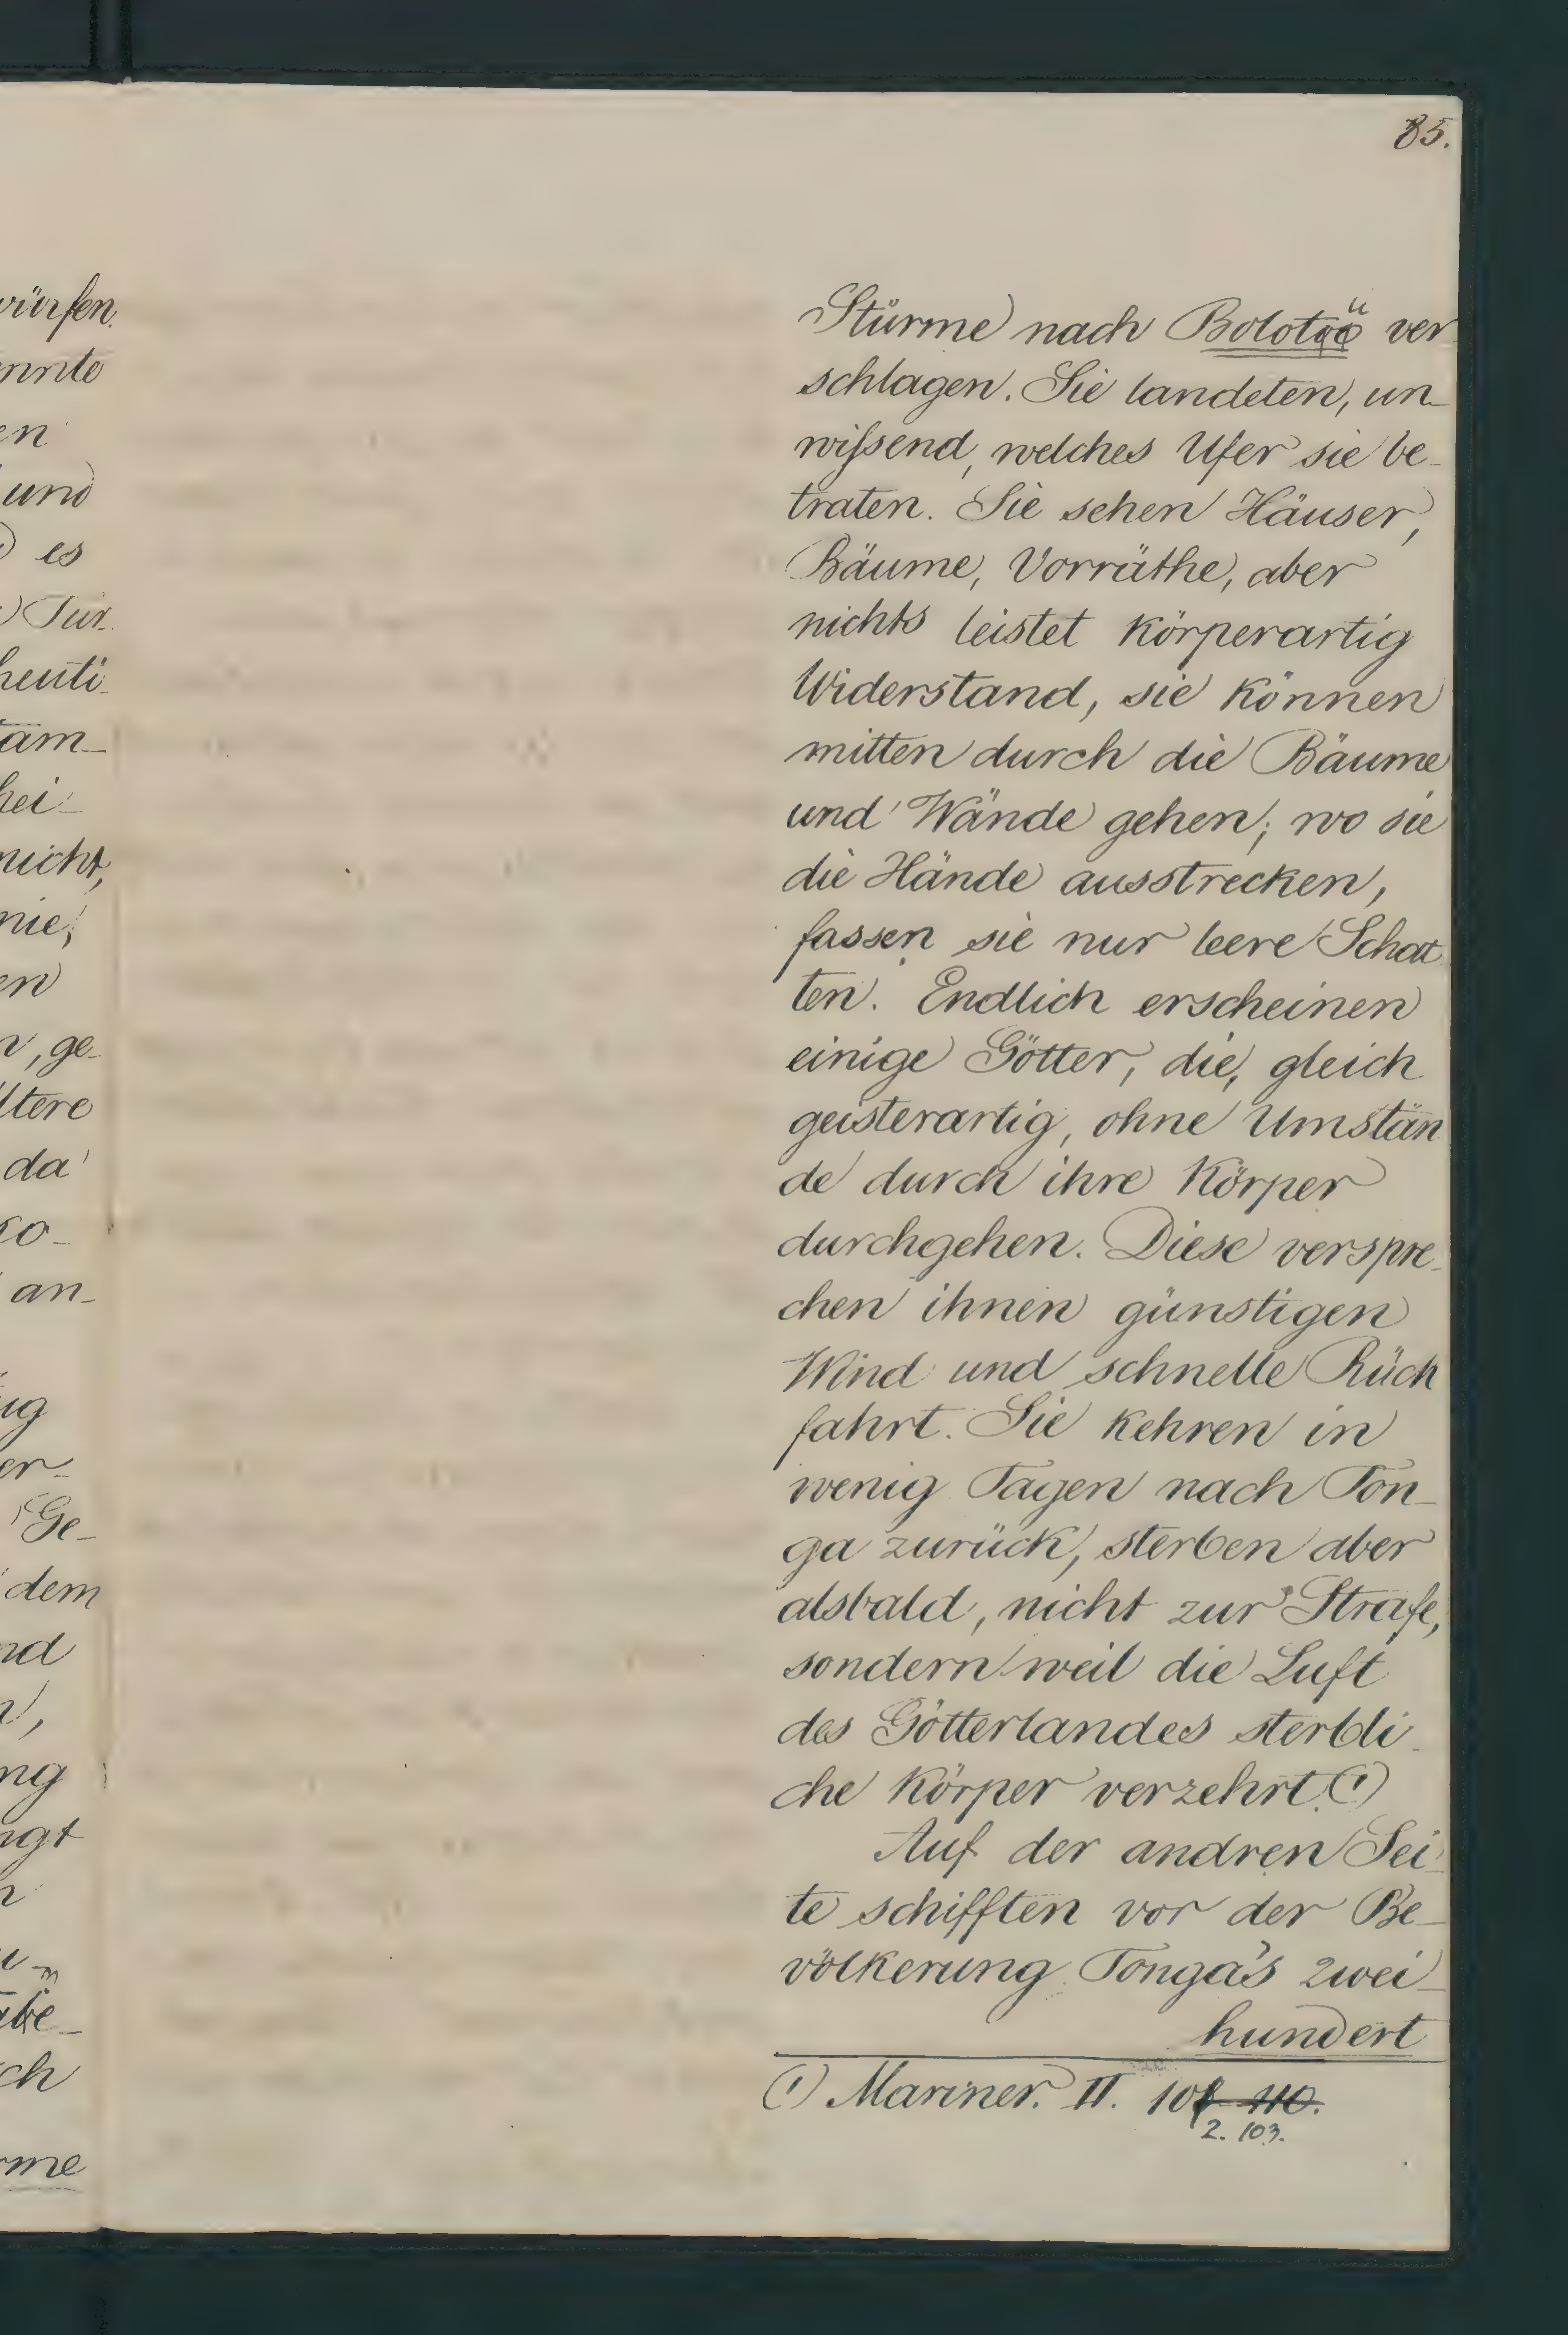 85.
würfen.
nnte
en
und
es
Tür-
heuti-
tam-
hei-
nicht,
nie;
en
n, ge-
ltere
da
ko-
an-
ug
er-
Ge-
dem
nd
n,
ng
ngt
n
m
abe-
ch
rme
Stürme nach Bolotoo ü ver
schlagen. Sie landeten, un-
wiſsend, welches Ufer sie be-
traten. Sie sehen Häuser,
Bäume, Vorräthe, aber
nichts leistet körperartig
Widerstand, sie können
mitten durch die Bäume
und Wände gehen; wo sie
die Hände ausstrecken,
fassen sie nur leere Schat
ten. Endlich erscheinen
einige Götter, die, gleich
geisterartig, ohne Umstän
de durch ihre Körper
durchgehen. Diese verspre-
chen ihnen günstigen
Wind und schnelle Rück
fahrt. Sie kehren in
wenig Tagen nach Ton-
ga zurück, sterben aber
alsbald, nicht zur Strafe,
sondern weil die Luft
des Götterlandes sterbli-
che Körper verzehrt. (1)
Auf der andren Sei-
te schifften vor der Be-
völkerung Tonga's zwei-
hundert
(1) Mariner. II. 10 110.
2. 103.